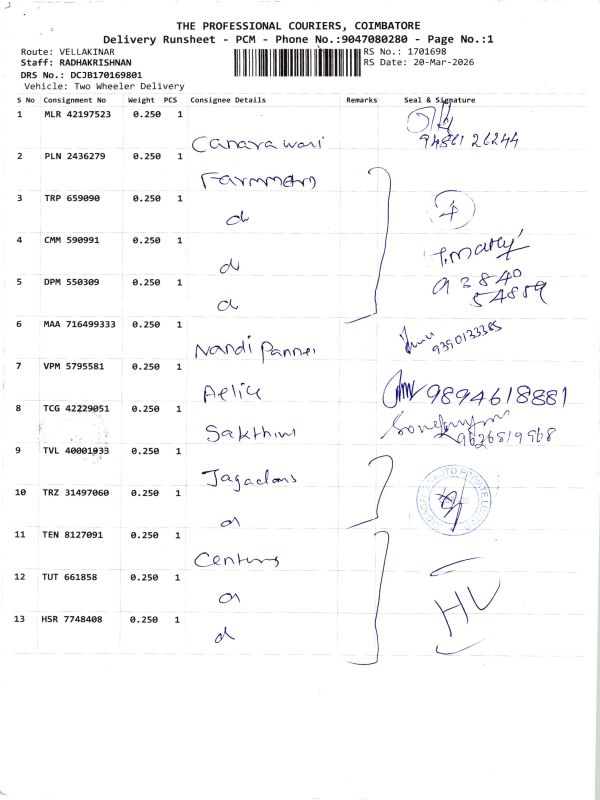 THE PROFESSIONAL COURIERS, COIMBATORE
Delivery Runsheet - PCM - Phone No.:9047080280 - Page No.:1
Route: VELLAKINAR RS No.: 1701698
Staff: RADHAKRISHNAN RS Date: 20-Mar-2026
DRS No.: DCJB170169801
Vehicle: Two Wheeler Delivery
S No Consignment No Weight PCS Consignee Details Remarks Seal & Signature
1 MLR 42197523 0.250 1 Canara
2 PLN 2436279 0.250 1
3 TRP 659090 0.250 1 d 4
4 CMM 590991 0.250 1 d
5 DPM 550309 0.250 1 d 93840 54889
6 MAA 716499333 0.250 1 Nandi 9390133385
7 VPM 5795581 0.250 1 9894618881
8 TCG 42229051 0.250 1 9626519568
9 TVL 40001933 0.250 1
10 TRZ 31497060 0.250 1
11 TEN 8127091 0.250 1
12 TUT 661858 0.250 1 HV
13 HSR 7748408 0.250 1 d